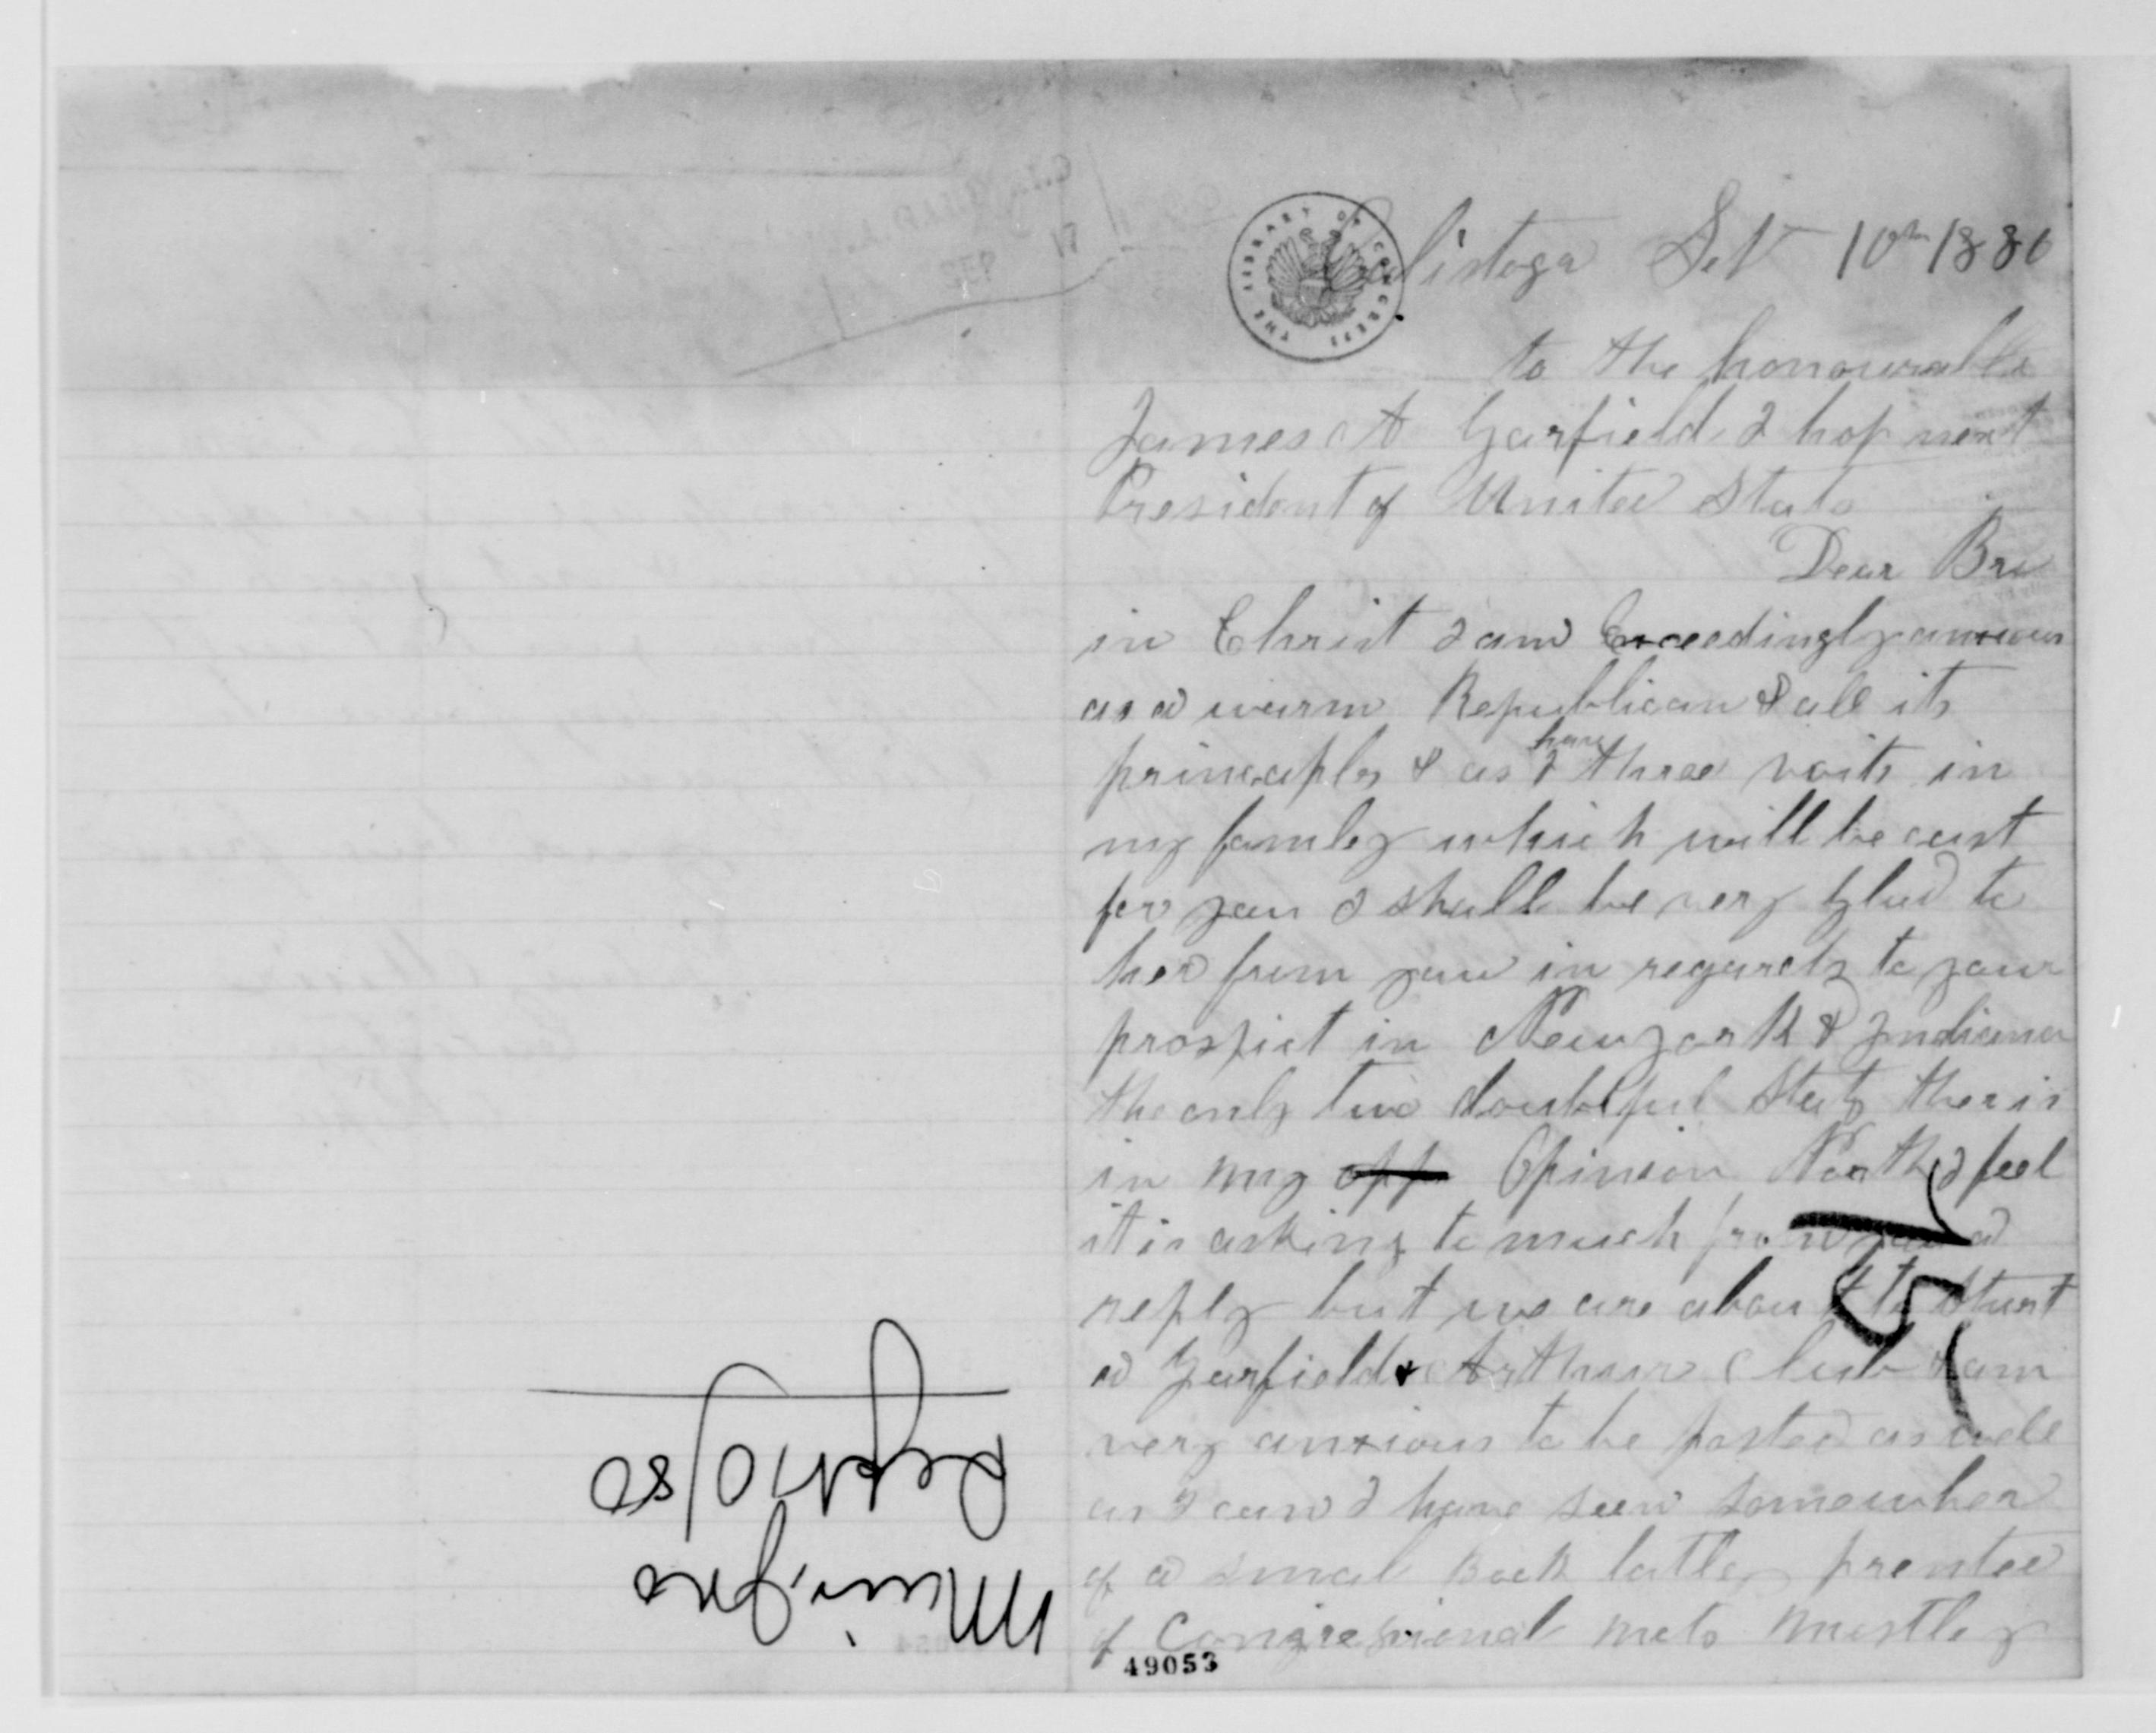 Calistoga Set 10th 1880
to the honourable
James A Garfield I hop next
President of United Stats
Dear Bro
in Christ I am Exceedingly anxious
as a warm Republican & all its
princaples & as I have three voits in
my famley which will be cast
for you I shall be very glad to
her from you in regards to your
prospict in Newyork & Indiana
the only two doubtful Stats ther is
in my opp Opinion North I feel
it is asking to much from you a
reply but we are about to Start
a Garfield & Arthur Club & am
very anxious to be posted as well
as I can I have seen somewher
of a smal Book latley prented
of Congresional mets mostley
49053
THE LIBRARY OF CONGRESS
Sept 10/80